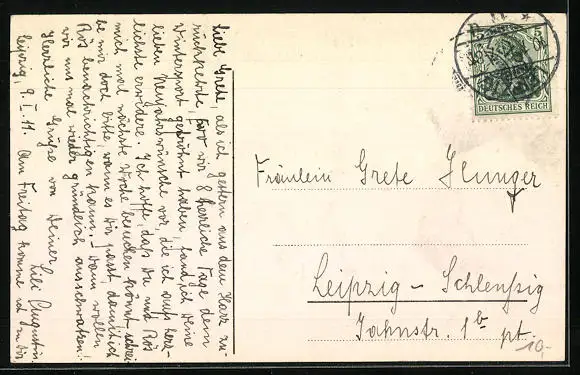 Liebe Grete, als ich gestern aus dem Harz zu-
rückkehrte, wo wir 8 herrliche Tage dem
Wintersport gefröhnt haben, fand ich Deine
lieben Neujahrswünsche vor, die ich aufs herz-
lichste erwidere. Ich hoffe, daß Du mit Rös
mich mal nächste Woche besuchen könnt - schrei-
be mir doch bitte, wann es Dir passt, damit ich
Rös benachrichtigen kann. - Dann wollen
wir uns mal wieder gründlich ausschwatzen!
Herrliche Grüße von Deiner
Lili Augustin.
Leipzig, 9.I.11. Am Freitag komme ich zu Dir,
DEUTSCHES REICH
5
5
Fräulein Grete Hunger
Leipzig - Schleußig
Jahnstr. 1b pt.
10,-